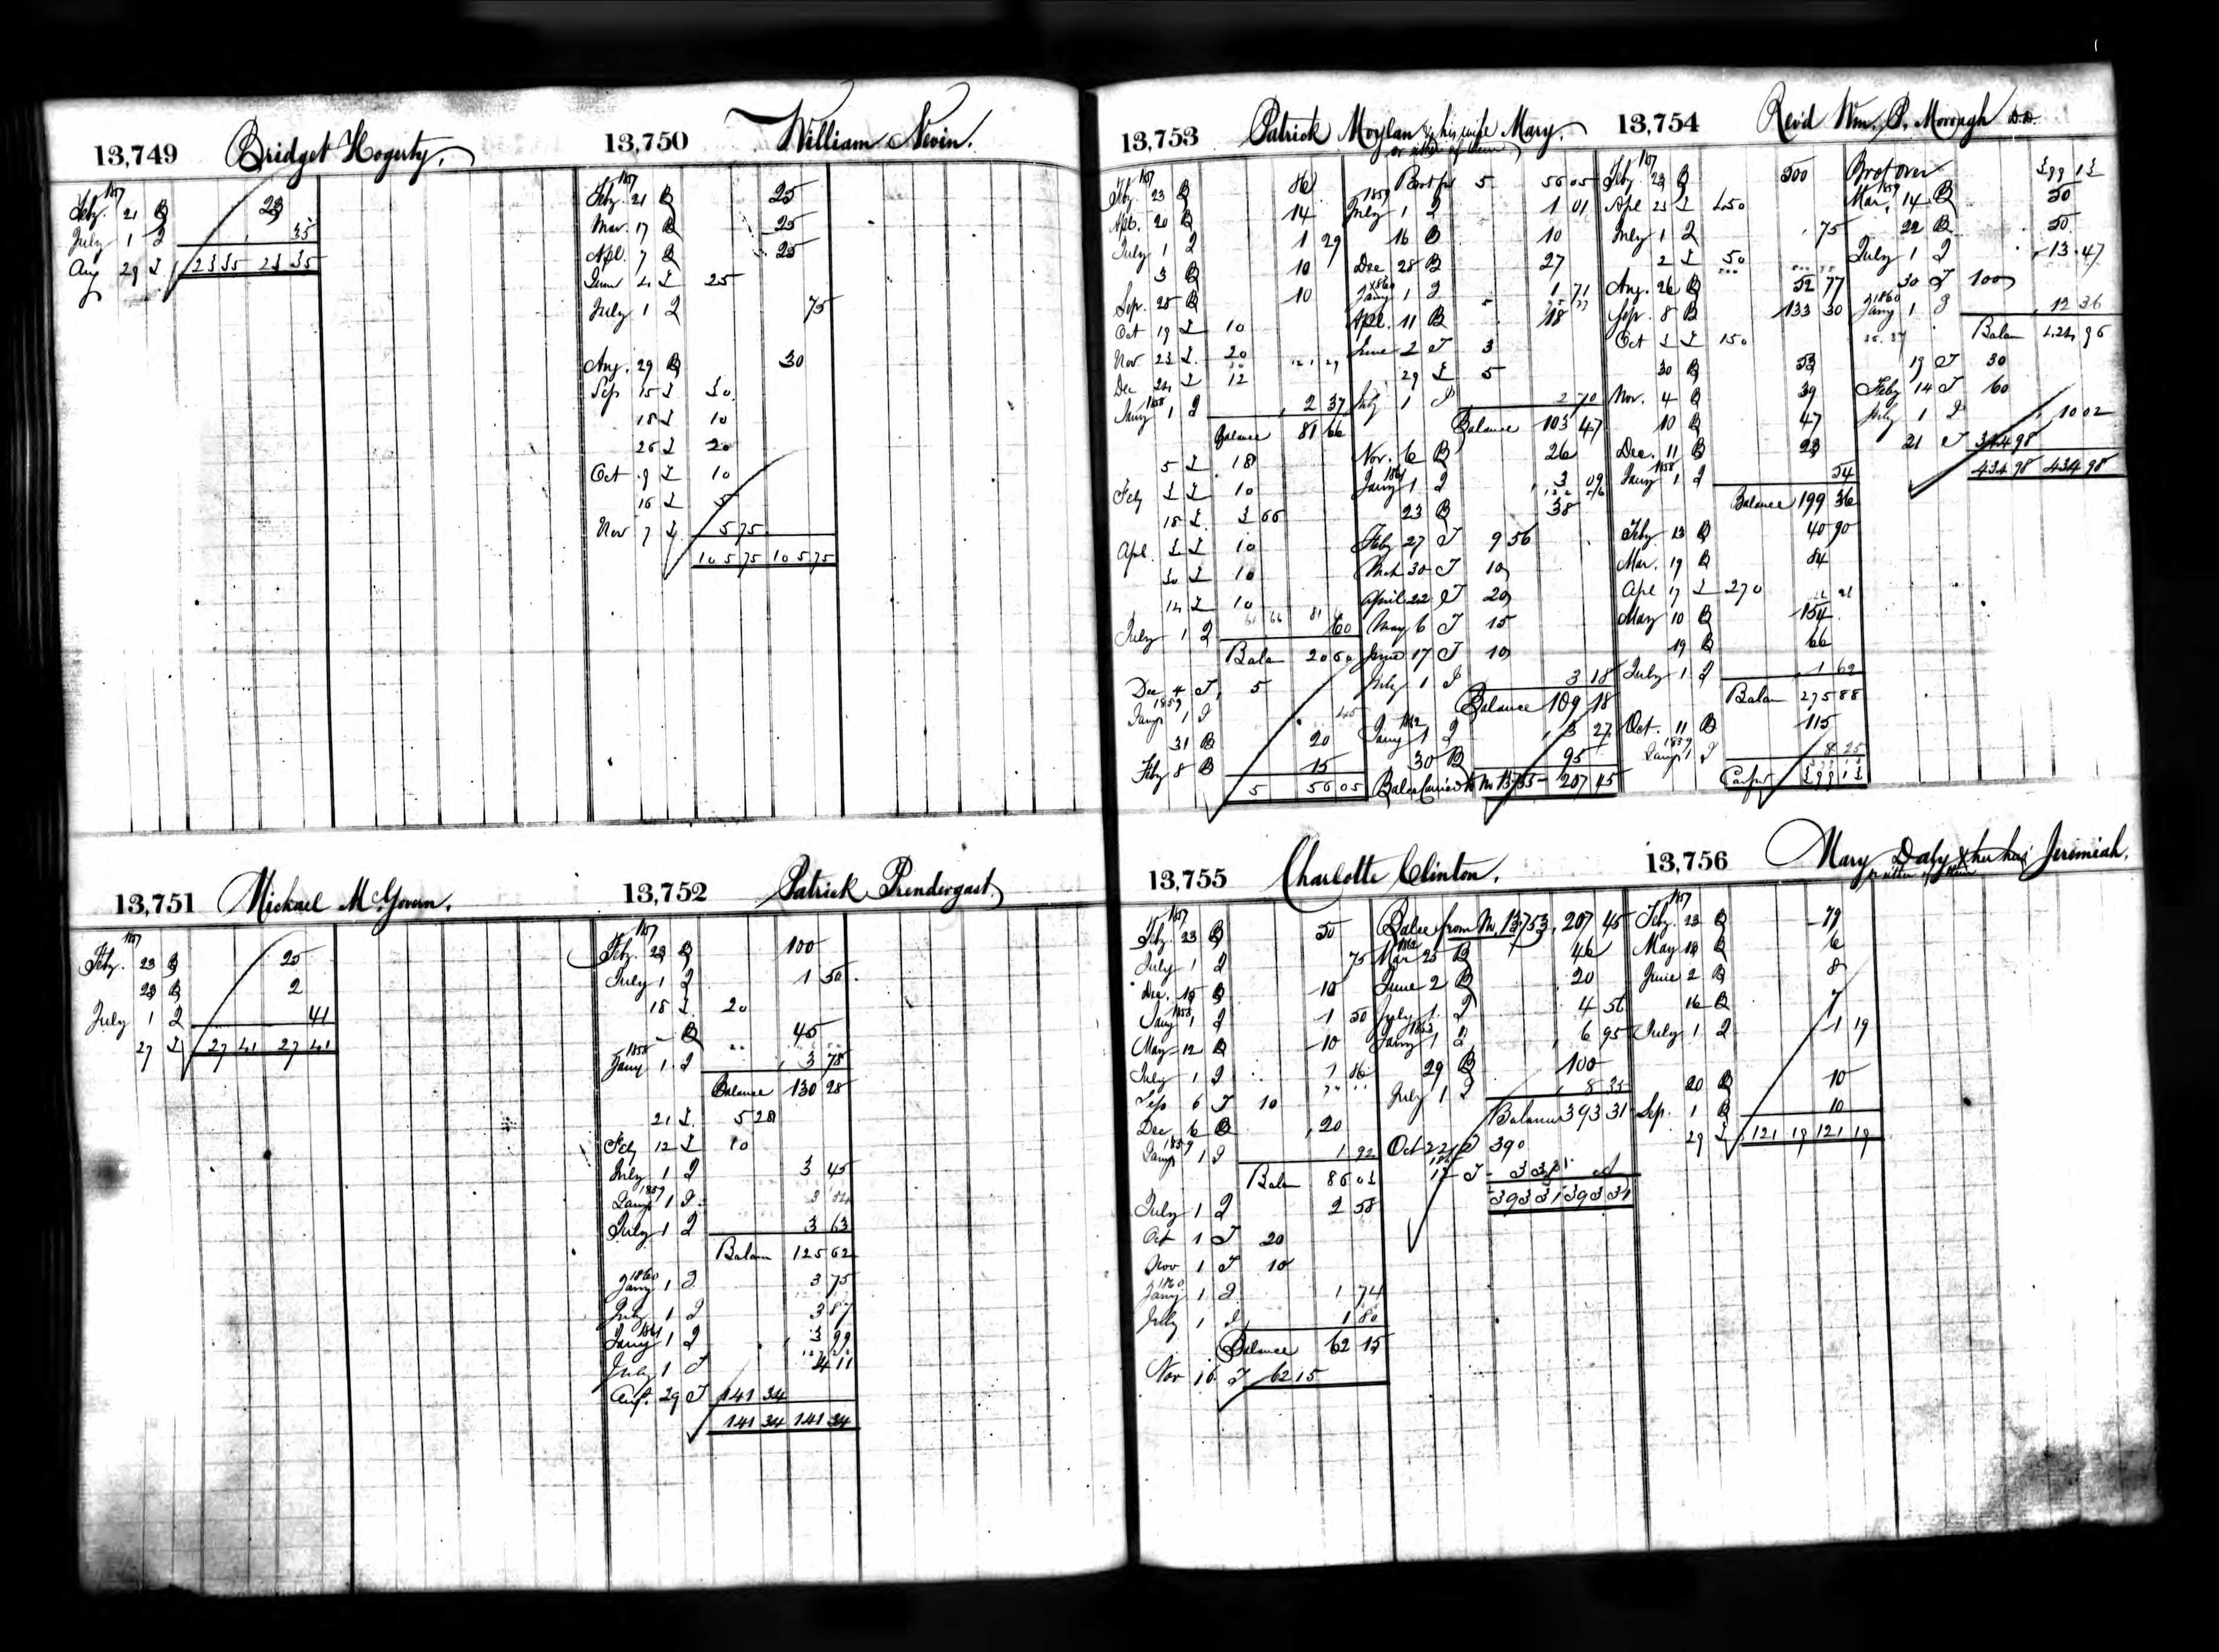 13,749 Bridget Hogerty.
1857
Feby. 21 B 23
July 1 I 35
Aug 29 D 23 35 23 35
13,750 William Nevin.
1857
Feby. 21 B 25
Mar. 17 B 25
Apl. 7 B 25
June 4 D 25
July 1 I 75
Aug. 29 B 30
Sep 15 D 30
18 D 10
26 D 20
Oct 9 D 10
16 D 5
Nov 7 D 5 75
105 75 105 75
13,751 Michael McGovern.
1857
Feby. 23 B 25
23 B 2
July 1 I 41
27 D 27 41 27 41
13,752 Patrick Prendergast
1857
Feby. 23 B 100
July 1 I 1 50
18 D 20
B 45
1858
Jany 1 I 3 78
Balance 130 28
21 D 5 28
Feby 12 D 10
July 1 I 3 45
1859
Jany 1 I
July 1 I 3 63
Balan 125 62
1860
Jany 1 I 3 75
July 1 I 3 87
1861
Jany 1 I 3 99
July 1 I 4 11
Aug. 29 D 141 34
141 34 141 34
13,753 Patrick Moylan & his wife Mary.
or either of them
1857
Feby. 23 B 86
Apl. 20 B 14
July 1 I 1 29
3 B 10
Sep. 28 B 10
Oct 19 D 10
Nov 23 D 20
Dec 24 D 12
1858
Jany 1 I 2 37
Balance 81 66
5 D 18
Feby 3 D 10
18 D 3 66
Apl 3 D 10
30 D 10
14 D 10
July 1 I 60
Balan 20 60
Dec 4 D 5
1859
Jany 1 I 45
31 B 20
Feby 8 B 15
5 56 05
Brot for 5 56 05
1859
July 1 I 1 01
16 B 10
Dec 28 B 27
1860
Jany 1 I 1 71
Apl. 11 B 18
June 2 D 3
29 D 5
July 1 I 2 70
Balance 103 47
Nov. 6 B 26
1861
Jany 1 I 3 09
23 B 38
Feby 27 D 9 56
Mch 30 D 10
April 22 D 20
May 6 D 15
June 17 D 10
July 1 I 3 18
Balance 109 18
1862
Jany 1 I 3 27
30 B 95
Balce Carried to No 13755 207 45
13,754 Rev'd Wm. P. Morrogh D.D.
1857
Feby. 23 B 500
Apl 23 D 450
July 1 I 75
2 D 50
Aug. 26 B 52 77
Sep. 8 B 133 30
Oct 3 D 150
30 B 53
Nov. 4 B 39
10 B 47
Dec. 11 B 23
1858
Jany 1 I 54
Balance 199 36
Feby 13 B 40 90
Mar. 19 B 84
Apl 17 D 270
May 10 B 154
19 B 66
July 1 I 1 62
Balan 275 88
Oct. 11 B 115
1859
Jany 1 I 8 25
Car for 399 13
Brot over 399 13
1859
Mar. 14 B 50
22 B 50
July 1 I 13 47
30 D 100
1860
Jany 1 I 12 36
Balan 424 96
19 D 30
Feby 14 D 60
July 1 I 10 02
21 D 344 98
434 98 434 98
13,755 Charlotte Clinton.
1857
Feby. 23 B 50
July 1 I 75
Dec. 18 B 10
1858
Jany 1 I 1 50
May 12 B 10
July 1 I 1 86
Sep 6 D 10
Dec 6 B 20
1859
Jany 1 I 1 92
Balan 86 03
July 1 I 2 58
Oct 1 D 20
Nov 1 D 10
1860
Jany 1 I 1 74
July 1 I 1 80
Balance 62 15
Nov 16 D 62 15
Balce from No. 13,753, 207 45
1862
Mar 25 B 46
June 2 B 20
July 1 I 4 56
1863
Jany 1 I 6 95
29 B 100
July 1 I 8 35
Balance 393 31
Oct 22 D 390
17 D 3 31
393 31 393 31
13,756 Mary Daly & her hus Jeremiah.
or either of them
1857
Feby. 23 B 79
May 18 B 6
June 2 B 8
16 B 7
July 1 I 1 19
20 B 10
Sep. 1 B 10
29 D 121 19 121 19